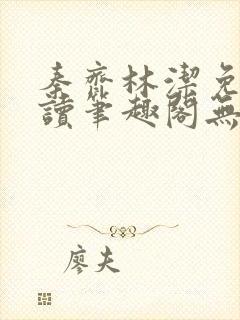 秦齊林潔免
讀筆趣閣無
廖夫